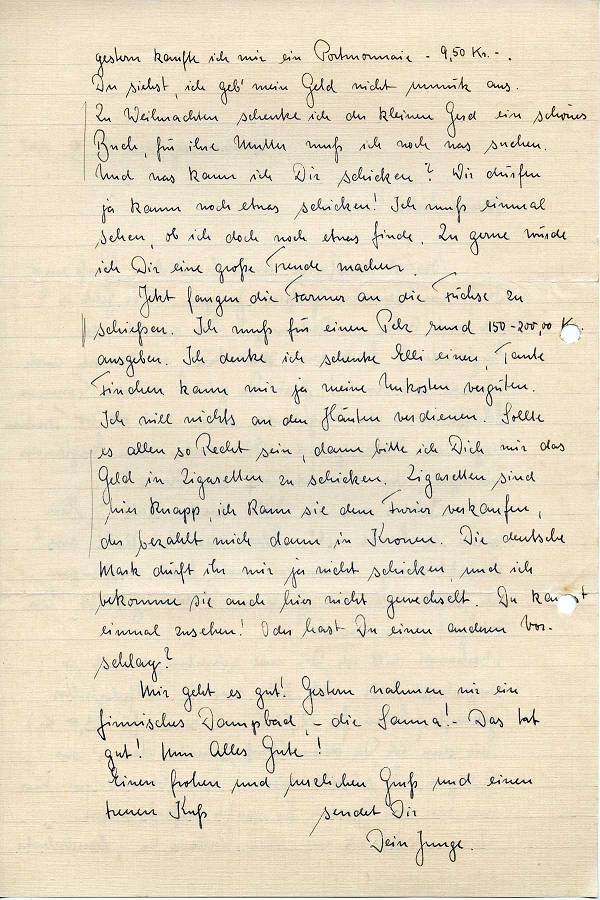 gestern kaufte ich mir ein Portmonnaie - 9,50 Kr. -.
Du siehst, ich geb' mein Geld nicht unnütz aus.
Zu Weihnachten schenke ich der kleinen Gerd ein schönes
Buch, für ihre Mutter muß ich noch was suchen.
Und was kann ich Dir schicken? Wir dürfen
ja kaum noch etwas schicken! Ich muß einmal
sehen, ob ich doch noch etwas finde. Zu gerne würde
ich Dir eine große Freude machen.
Jetzt fangen die Farmer an die Füchse zu
schießen. Ich muß für einen Pelz rund 150-200,00 Kr.
ausgeben. Ich denke ich schenke Elli einen, Tante
Finchen kann mir ja meine Unkosten vergüten.
Ich will nichts an den Häuten verdienen. Sollte
es allen so Recht sein, dann bitte ich Dich mir das
Geld in Zigaretten zu schicken. Zigaretten sind
hier knapp, ich kann sie dem Furier verkaufen,
der bezahlt mich dann in Kronen. Die deutsche
Mark dürft ihr mir ja nicht schicken, und ich
bekomme sie auch hier nicht gewechselt. Du kannst
einmal zusehen! Oder hast Du einen anderen Vor-
schlag?
Mir geht es gut! Gestern nahmen wir ein
finnisches Dampbad, - die Sauna! - Das tat
gut! Nun Alles Gute!
Einen frohen und herzlichen Gruß und einen
treuen Kuß sendet Dir
Dein Junge.